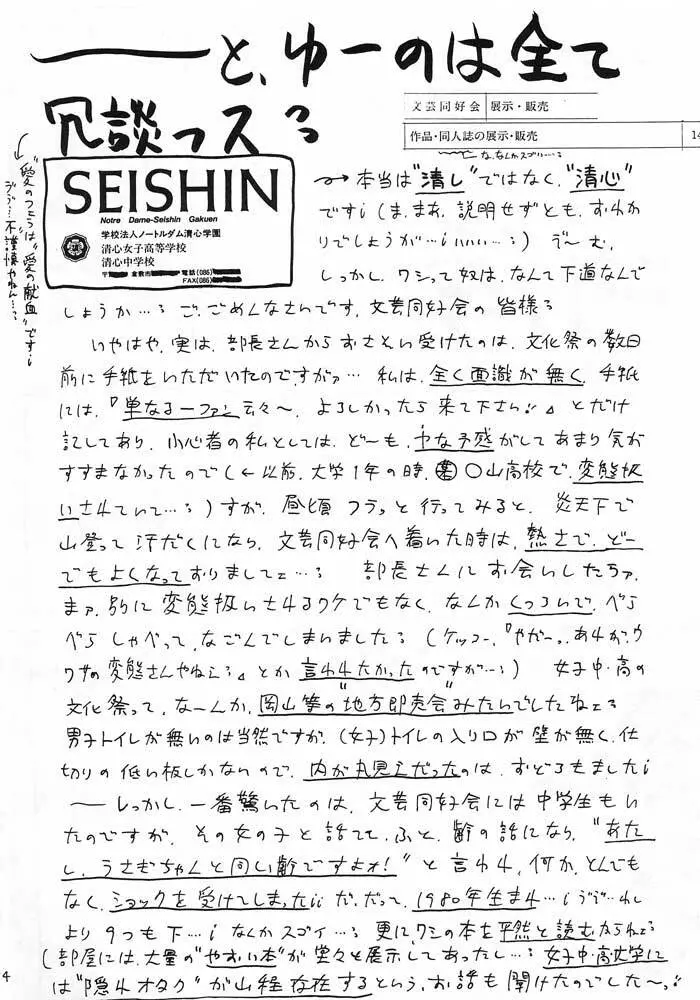 ――と、ゆーのは全て
冗談っス
文芸同好会 展示・販売
作品・同人誌の展示・販売 14
な、なんかスゴい…
SEISHIN
Notre Dame-Seishin Gakuen
学校法人ノートルダム清心学園
清心女子高等学校
清心中学校
〒 倉敷市 電話(086)
FAX(086)
"愛のつぇうは"愛の献血"です
不謹慎やねん…
本当は"清し"ではなく、"清心"
です(ま、まあ、説明せずとも、おわか
りでしょうが…いいい…)で〜む、
しっかし、ワシって奴は、なんて下道なんで
しょうか…ご、ごめんなさいです、文芸同好会の皆様
いやはや、実は、部長さんからおさそい受けたのは、文化祭の数日
前に手紙をいただいたのですがァ… 私は、全く面識が無く、手紙
には、『単なる一ファン云々〜、よろしかったら来て下さい』とだけ
記してあり、小心者の私としては、ど〜も、ヤな予感がしてあまり気が
すすまなかったので(←以前、大学1年の時、〇山高校で、変態扱
いされていて…)すが、昼頃フラっと行ってみると、炎天下で
山登って汗だくになり、文芸同好会へ着いた時は、熱さで、どー
でもよくなっておりまして… 部長さんにお会いしたらァ、
まァ、別に変態扱いされるワケでもなく、なんかくつろいで、べら
べらしゃべって、なごんでしまいました(ケッコー、『やだーっ、あれが、ウ
ワサの変態さんやねえ』とか言われたかったのですが…) 女子中・高の
文化祭って、なーんか、岡山等の"地方即売会"みたいでしたね
男子トイレが無いのは当然ですが、(女子)トイレの入り口が壁が無く、仕
切りの低い板しかないので、内が丸見えだったのは、おどろきました
――しっかし、一番驚いたのは、文芸同好会には中学生もい
たのですが、その女の子と話してて、ふと、齢の話になり、"あた
し、うさぎちゃんと同じ齢ですよォ!"と言われ、何か、とんでも
なく、ショックを受けてしまった だ、だって、1980年生まれ…
より9つも下… なんかスゴイ… 更に、ワシの本を平然と読むかられ
(部屋には、大量の"やおい本"が堂々と展示してあったし… 女子中・高・大学に
は"隠れオタク"が山程存在するという、お話も聞けたのでした〜
4